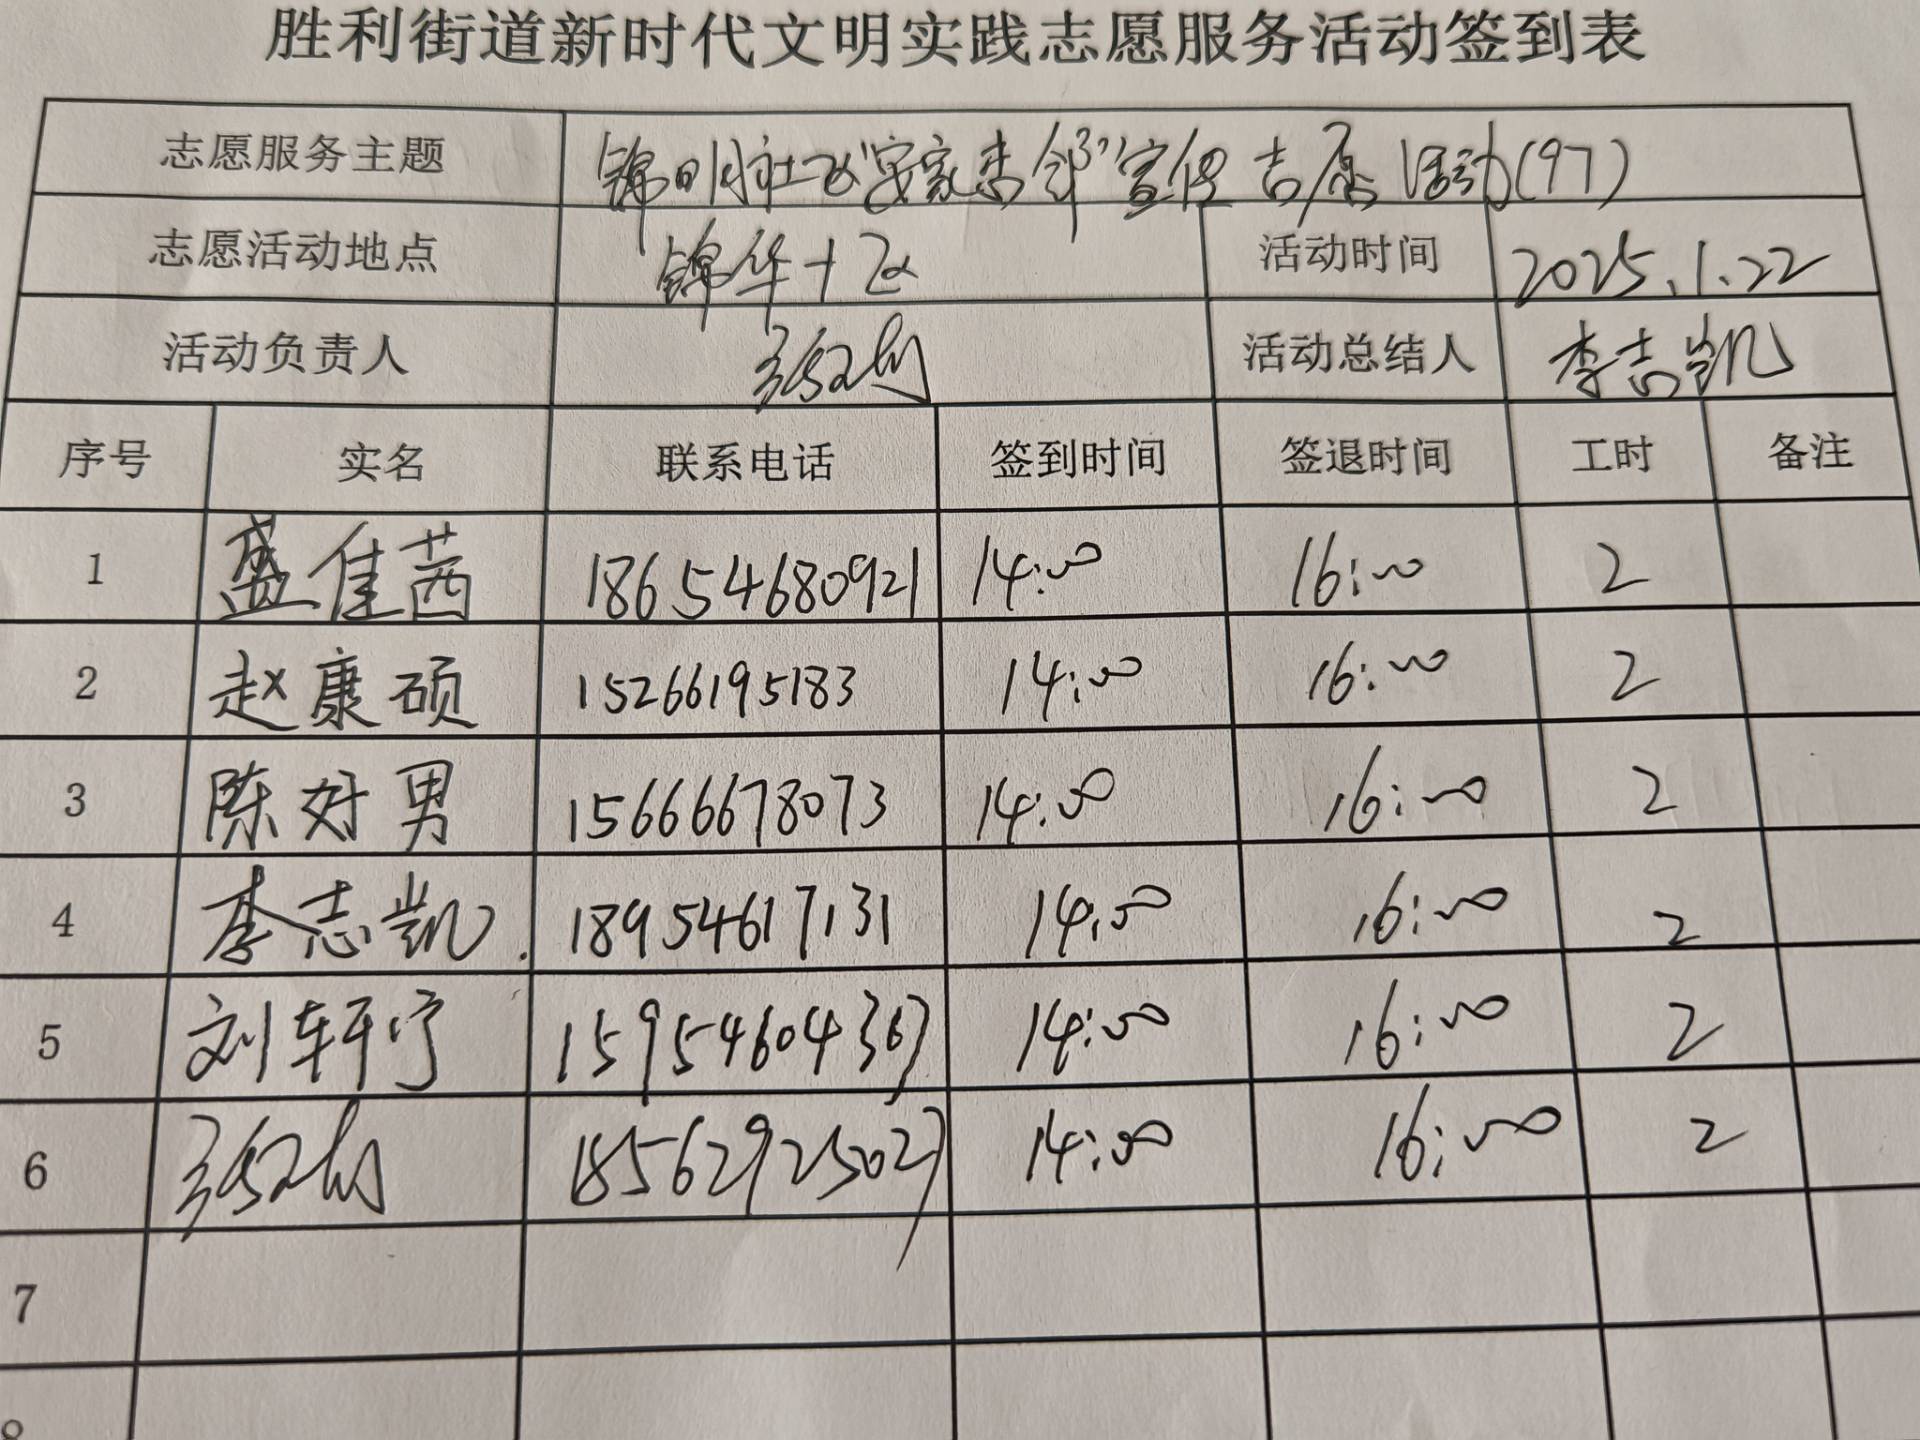 胜利街道新时代文明实践志愿服务活动签到表
志愿服务主题 锦明社区"安家 邻"宣传 活动(97)
志愿活动地点 锦华十区 活动时间 2025.1.22
活动负责人 活动总结人 李志凯
序号 实名 联系电话 签到时间 签退时间 工时 备注
1 盛佳茜 18654680921 14:00 16:00 2
2 赵康硕 15266195183 14:00 16:00 2
3 陈好男 15666678073 14:00 16:00 2
4 李志凯. 18954617131 14:00 16:00 2
5 刘轩宁 15954604367 14:00 16:00 2
6 18562925027 14:00 16:00 2
7
8